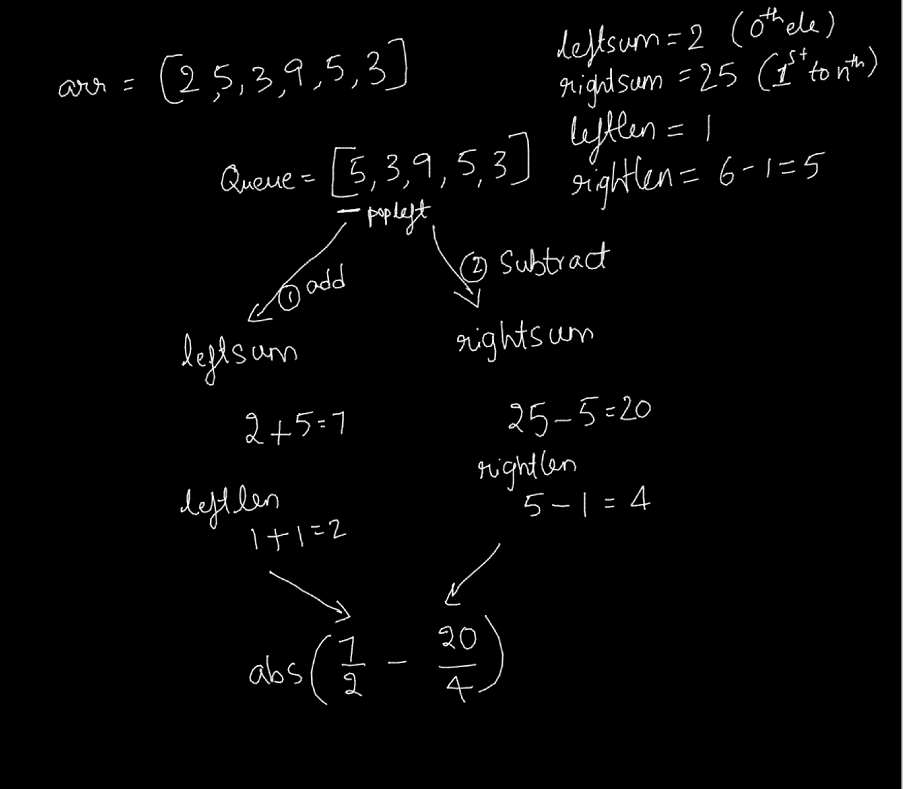 arr = [2,5,3,9,5,3]
leftsum = 2 (0th ele)
rightsum = 25 (1st to nth)
leftlen = 1
rightlen = 6-1=5
Queue = [5,3,9,5,3]
popleft
① add
② Subtract
leftsum
rightsum
2+5=7
25-5=20
leftlen
rightlen
1+1=2
5-1=4
abs(7/2 - 20/4)